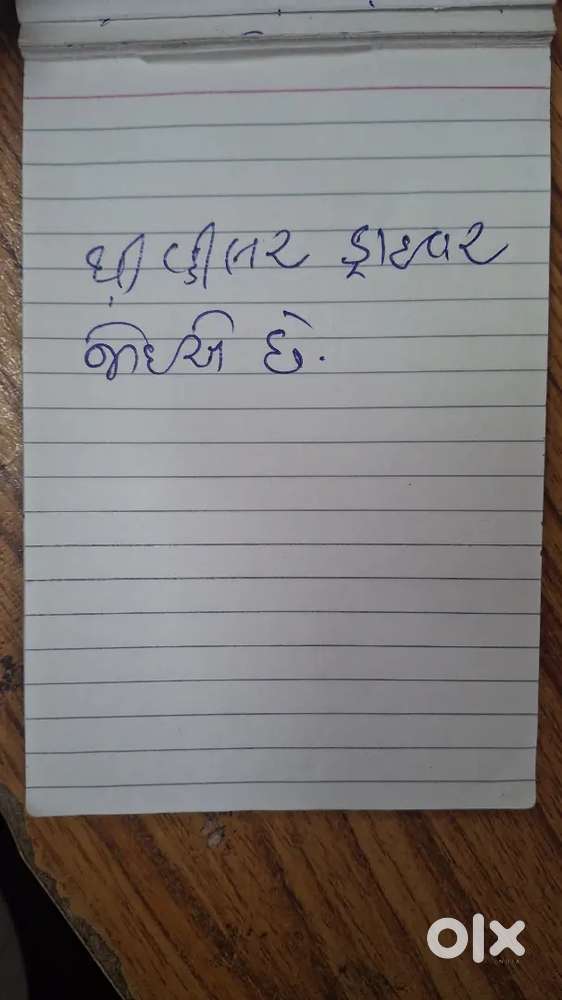 થ્રી વ્હીલર ડ્રાઇવર
જોઇએ છે.
olx
INDIA